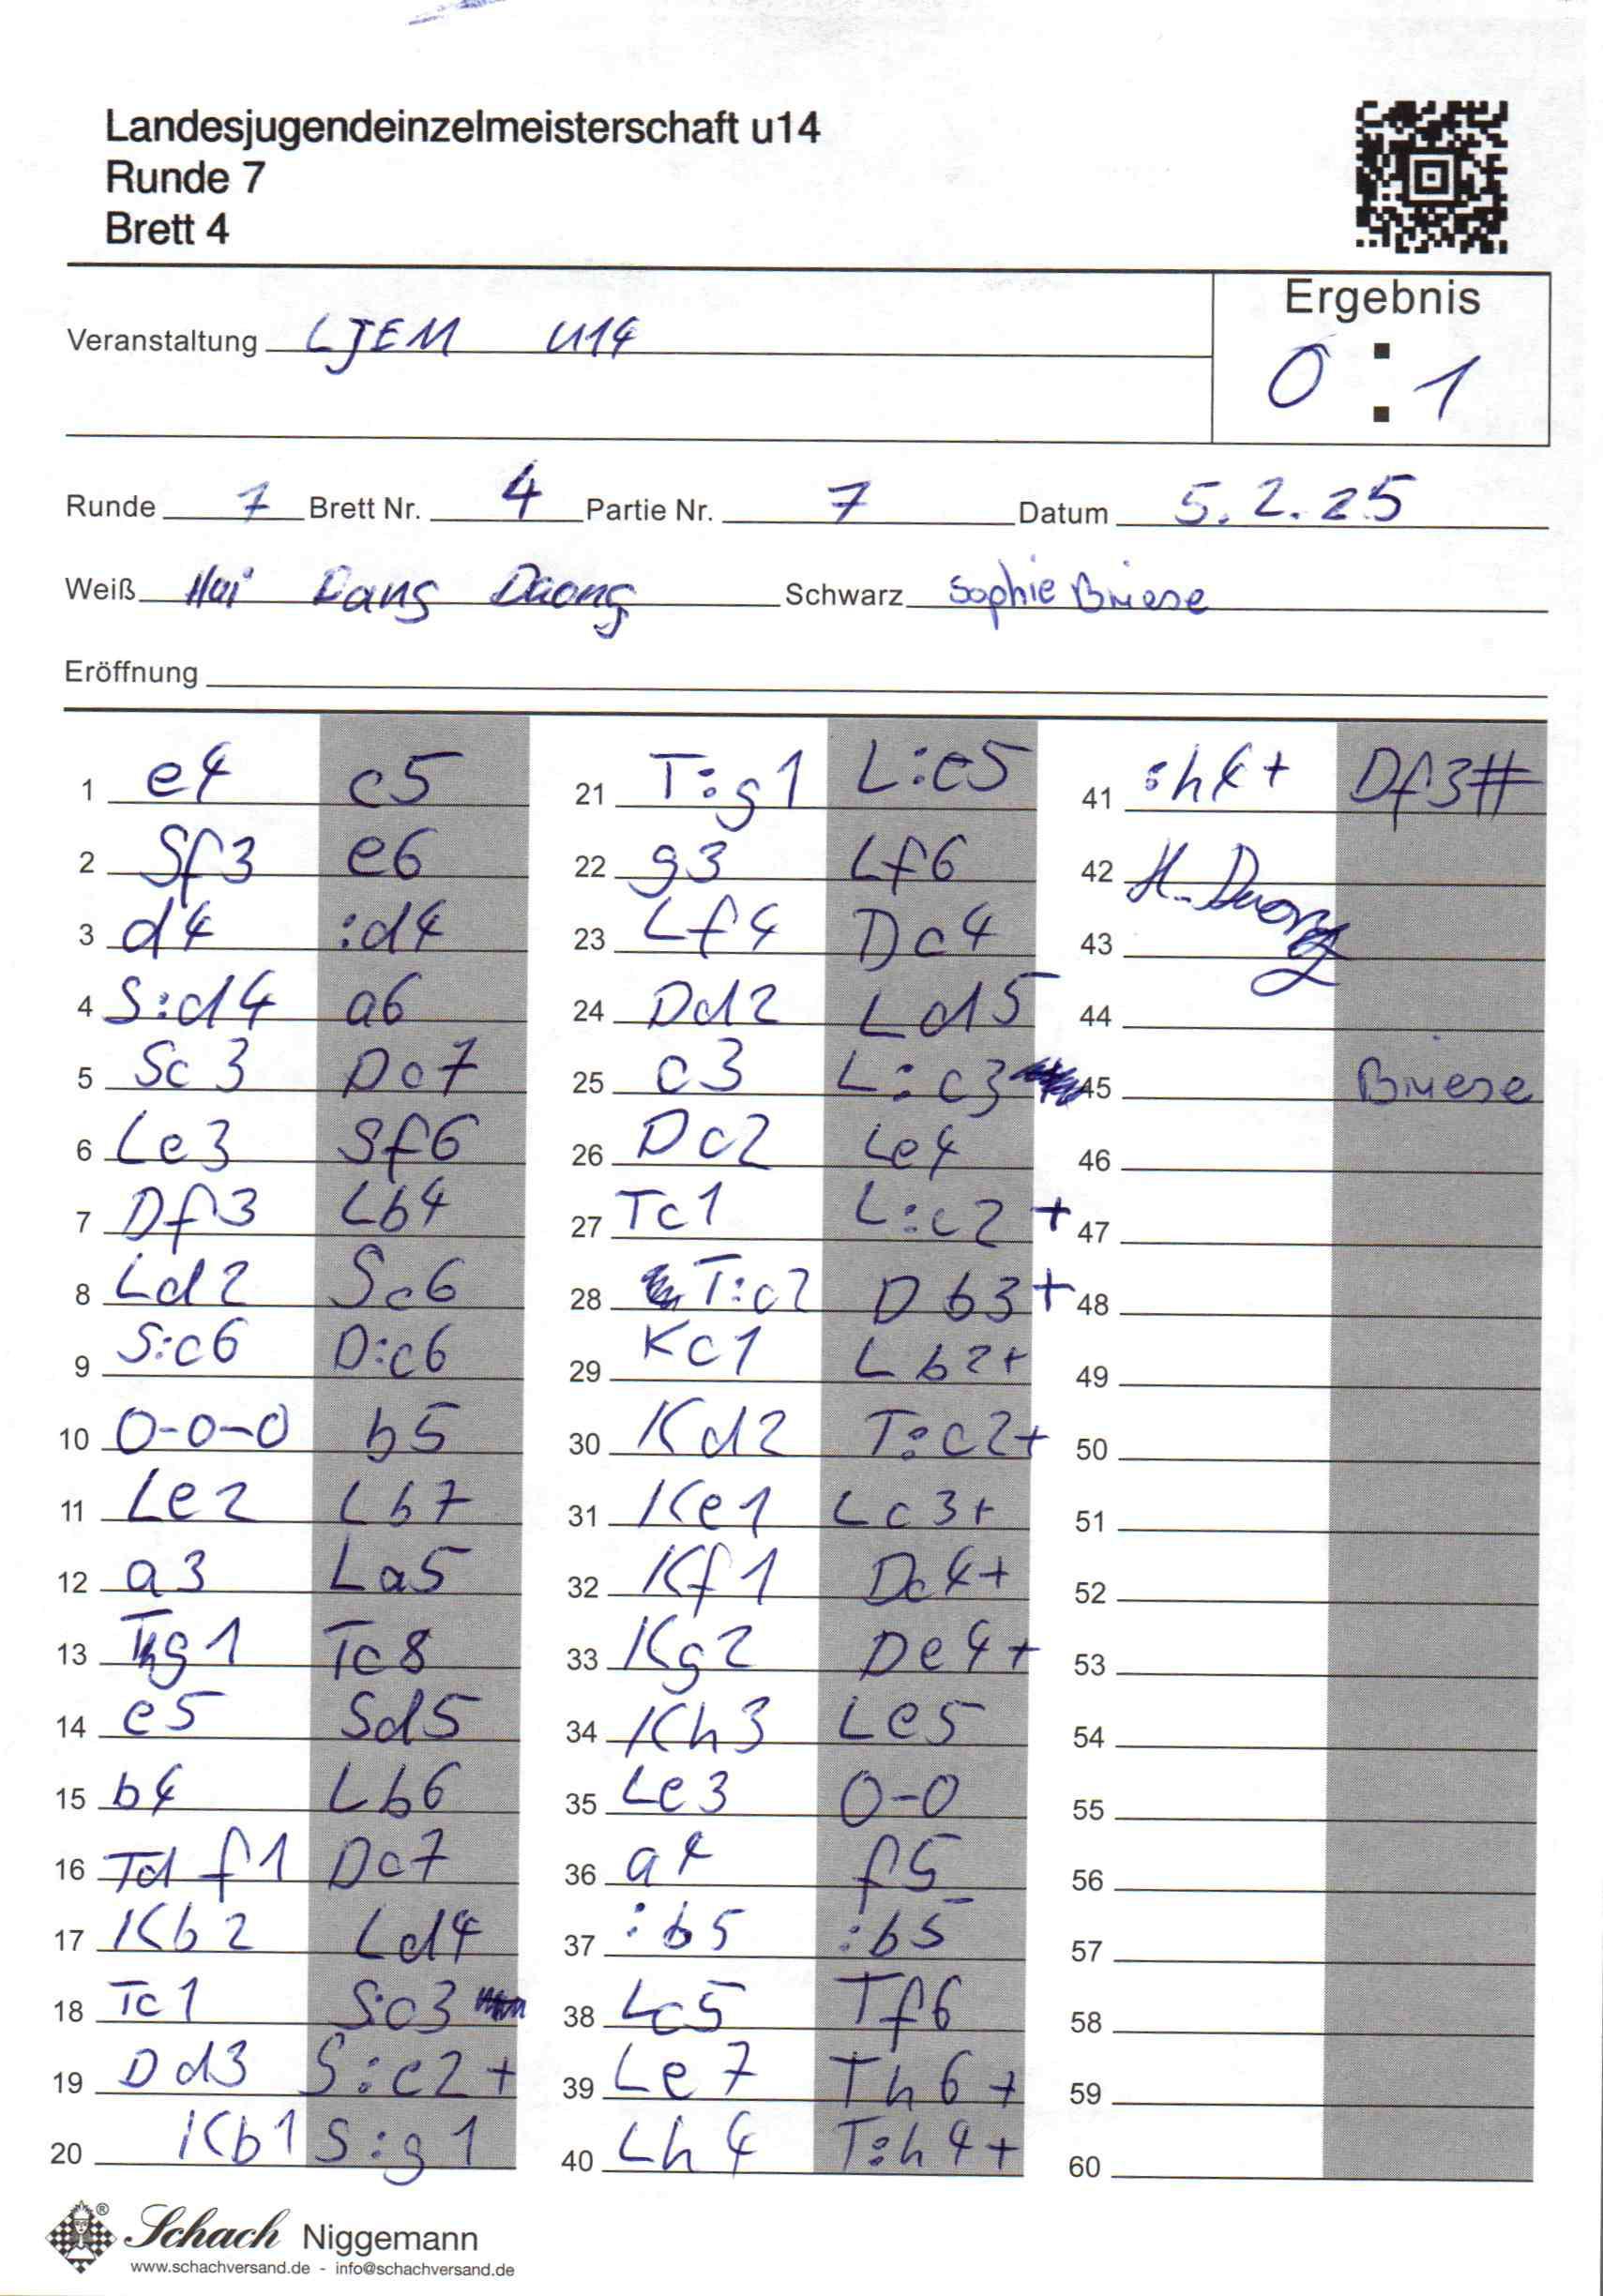 Landesjugendeinzelmeisterschaft u14
Runde 7
Brett 4
Ergebnis
0 : 1
Veranstaltung LJEM U14
Runde 7 Brett Nr. 4 Partie Nr. 7 Datum 5.2.25
Weiß Hai Dang Duong Schwarz Sophie Briese
Eröffnung
1 e4 c5
2 Sf3 e6
3 d4 :d4
4 S:d4 a6
5 Sc3 Dc7
6 Le3 Sf6
7 Df3 Lb4
8 Ld2 Sc6
9 S:c6 D:c6
10 0-0-0 b5
11 Le2 Lb7
12 a3 La5
13 Thg1 Tc8
14 e5 Sd5
15 b4 Lb6
16 Tdf1 Dc7
17 Kb2 Ld4
18 Tc1 S:c3
19 Dd3 S:e2+
20 Kb1 S:g1
21 T:g1 L:e5
22 g3 Lf6
23 Lf4 Dc4
24 Dd2 Ld5
25 c3 L:c3
26 Dc2 Le4
27 Tc1 L:c2+
28 T:c2 Db3+
29 Kc1 Lb2+
30 Kd2 T:c2+
31 Ke1 Lc3+
32 Kf1 Dc4+
33 Kg2 De4+
34 Kh3 Le5
35 Le3 0-0
36 a4 f5
37 :b5 :b5
38 Lc5 Tf6
39 Le7 Th6+
40 Lh4 T:h4+
41 :h4+ Df3#
42 H. Duong
43
44
45 Briese
46
47
48
49
50
51
52
53
54
55
56
57
58
59
60
Schach Niggemann
www.schachversand.de - info@schachversand.de